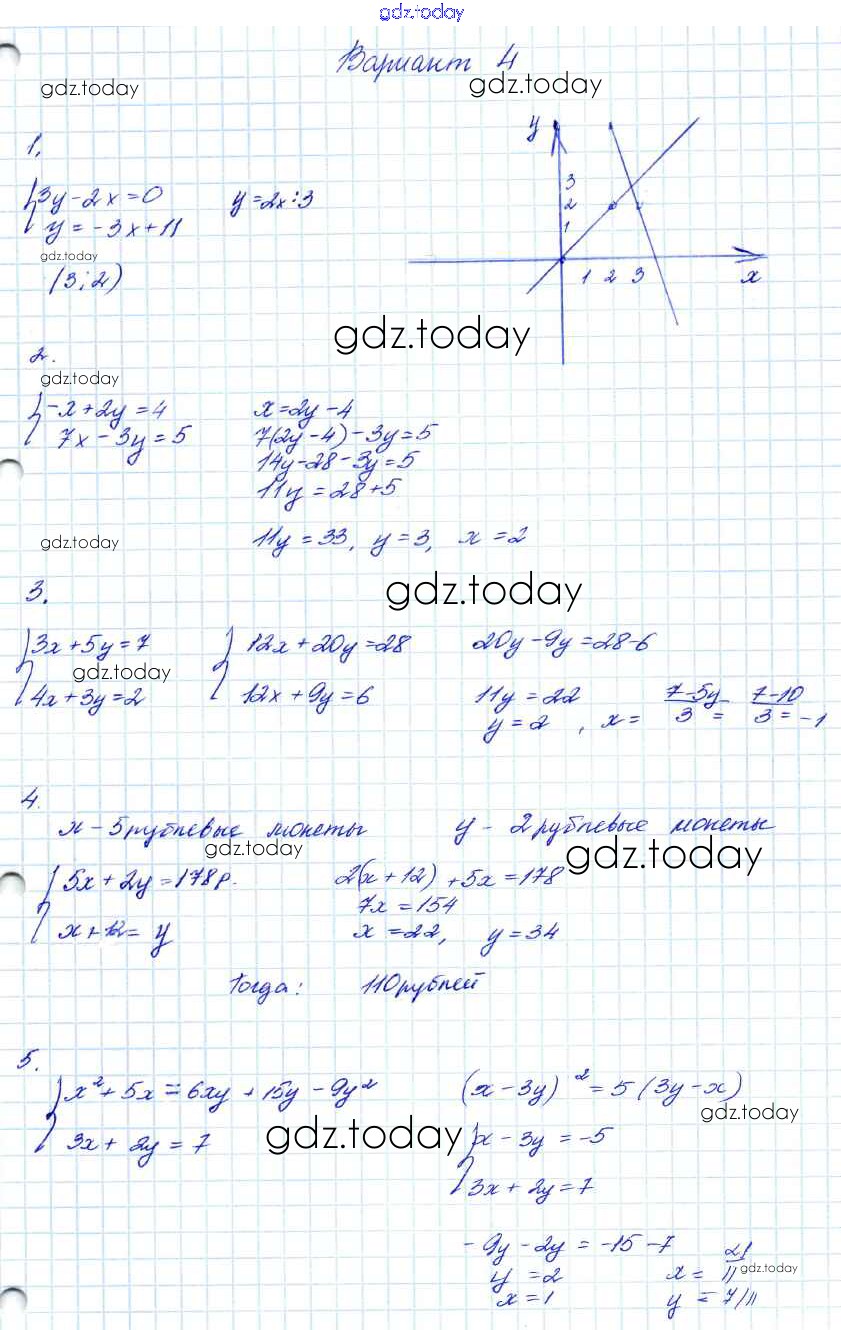 gdz.today
Вариант 4
gdz.today gdz.today
1.
3y-2x=0 y=2x:3
y=-3x+11
gdz.today
(3;2)
y
3
2
1
1 2 3 x
gdz.today
2.
gdz.today
-x+2y=4 x=2y-4
7x-3y=5 7(2y-4)-3y=5
14y-28-3y=5
11y=28+5
gdz.today 11y=33, y=3, x=2
3. gdz.today
3x+5y=7 12x+20y=28 20y-9y=28-6
gdz.today
4x+3y=2 12x+9y=6 11y=22
y=2, x= 7-5y/3 = 7-10/3=-1
4.
x-5рублевые монеты y-2рублевые монеты
gdz.today gdz.today
5x+2y=178р. 2(x+12)+5x=178
7x=154
x+12=y x=22, y=34
Тогда: 110рублей
5.
x²+5x=6xy+15y-9y² (x-3y)²=5(3y-x)
gdz.today
3x+2y=7 gdz.today x-3y=-5
3x+2y=7
-9y-2y=-15-7
y=2 x=21/11 gdz.today
x=1 y=7/11